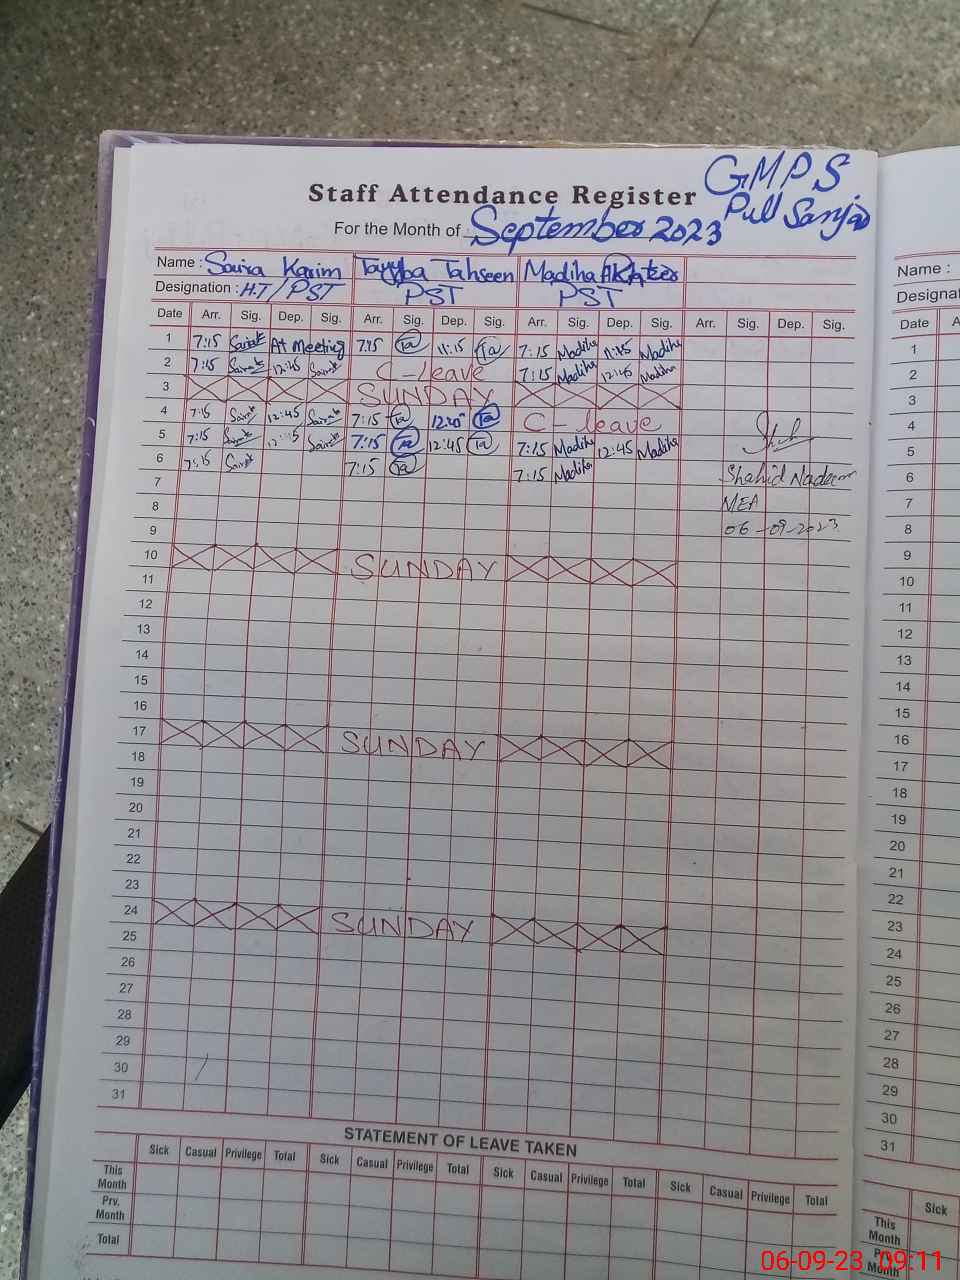 GMPS
Staff Attendance Register
Pull
For the Month of September 2023
Name : Saira Karim Tayyba Tahseen Madiha
Designation : H.T / PST PST PST
Date Arr. Sig. Dep. Sig. Arr. Sig. Dep. Sig. Arr. Sig. Dep. Sig. Arr. Sig. Dep. Sig.
1 7:15 At Meeting 7:15 Ta 11:15 Ta 7:15 Madiha Madiha
2 7:15 12:45 C-leave 7:15 Madiha 12:45 Madiha
3 SUNDAY
4 7:15 12:45 7:15 Ta Ta C-leave
5 7:15 7:15 Ta 12:45 Ta 7:15 Madiha 12:45 Madiha
6 7:15 7:15 Ta 7:15 Madiha Shahid Nadeem
7 MEA
8 06-09-2023
9
10 SUNDAY
11
12
13
14
15
16
17 SUNDAY
18
19
20
21
22
23
24 SUNDAY
25
26
27
28
29
30
31
STATEMENT OF LEAVE TAKEN
Sick Casual Privilege Total Sick Casual Privilege Total Sick Casual Privilege Total Sick Casual Privilege Total
This Month
Prv. Month
Total
Name :
Designat
Date A
1
2
3
4
5
6
7
8
9
10
11
12
13
14
15
16
17
18
19
20
21
22
23
24
25
26
27
28
29
30
31
Sick
This Month
Prv. Month
06-09-23 09:11